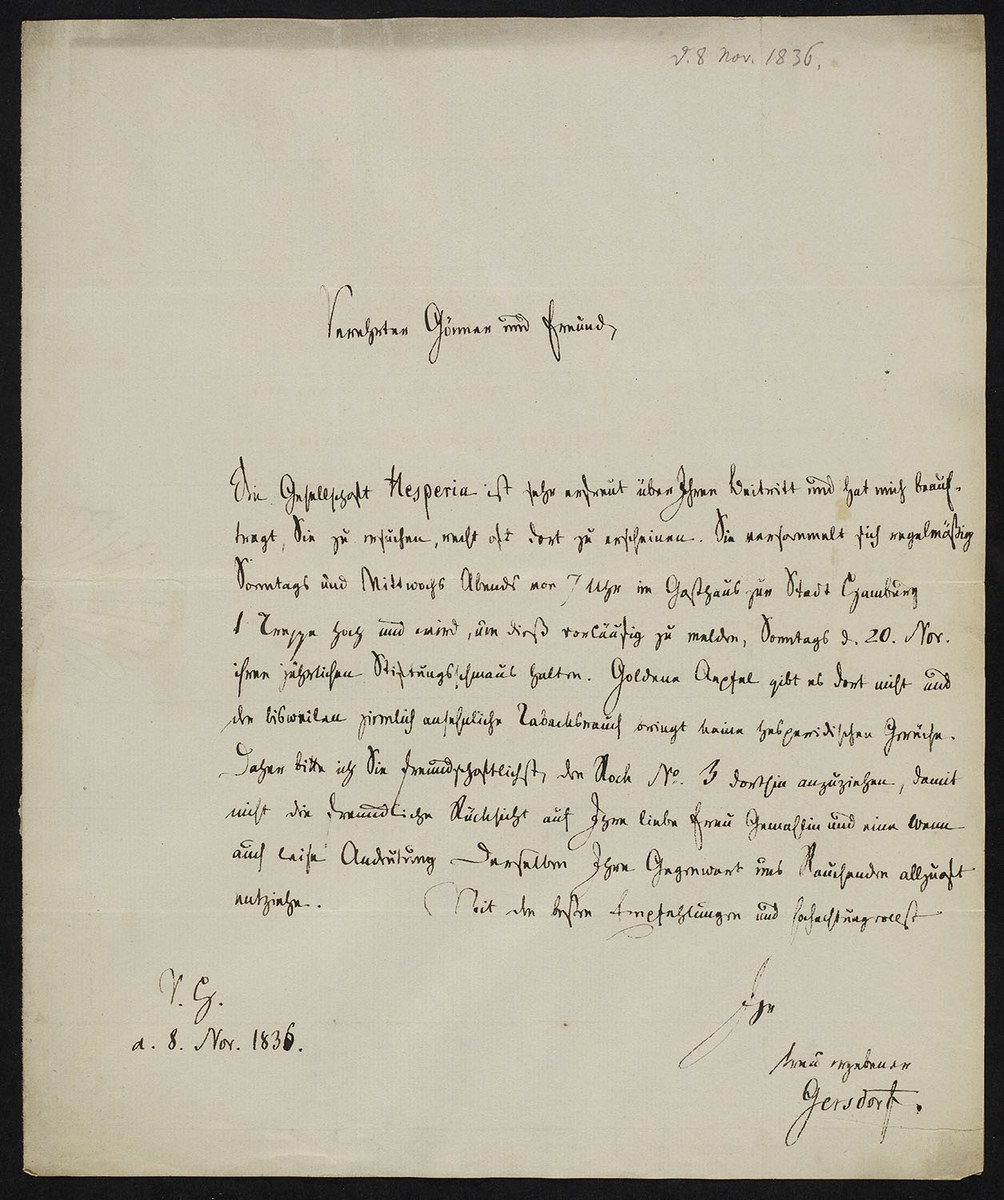 d. 8 Nov. 1836.
Verehrter Gönner und Freund,
Die Gesellschaft Hesperia ist sehr erfreut über Ihren Beitritt und hat mich beauf-
tragt, Sie zu ersuchen, recht oft dort zu erscheinen. Sie versammelt sich regelmäßig
Sonntags und Mittwochs Abends von 7 Uhr im Gasthaus zur Stadt Hamburg
1 Treppe hoch und wird, um dieß vorläufig zu melden, Sonntags d. 20. Nov.
ihren jährlichen Stiftungsschmaus halten. Goldene Aepfel gibt es dort nicht und
der bisweilen ziemlich ansehnliche Tabacksrauch bringt keine hesperidischen Gerüche.
Daher bitte ich Sie freundschaftlichst, den Rock No. 3 dorthin anzuziehen, damit
nicht die freundliche Rücksicht auf Ihre liebe Frau Gemahlin und eine wenn
auch leise Andeutung Derselben Ihre Gegenwart uns Rauchenden allzuoft
entziehe. Mit den besten Empfehlungen und hochachtungsvollst
V. H.
d. 8. Nov. 1836.
Ihr
treu ergebener
Gersdorf.